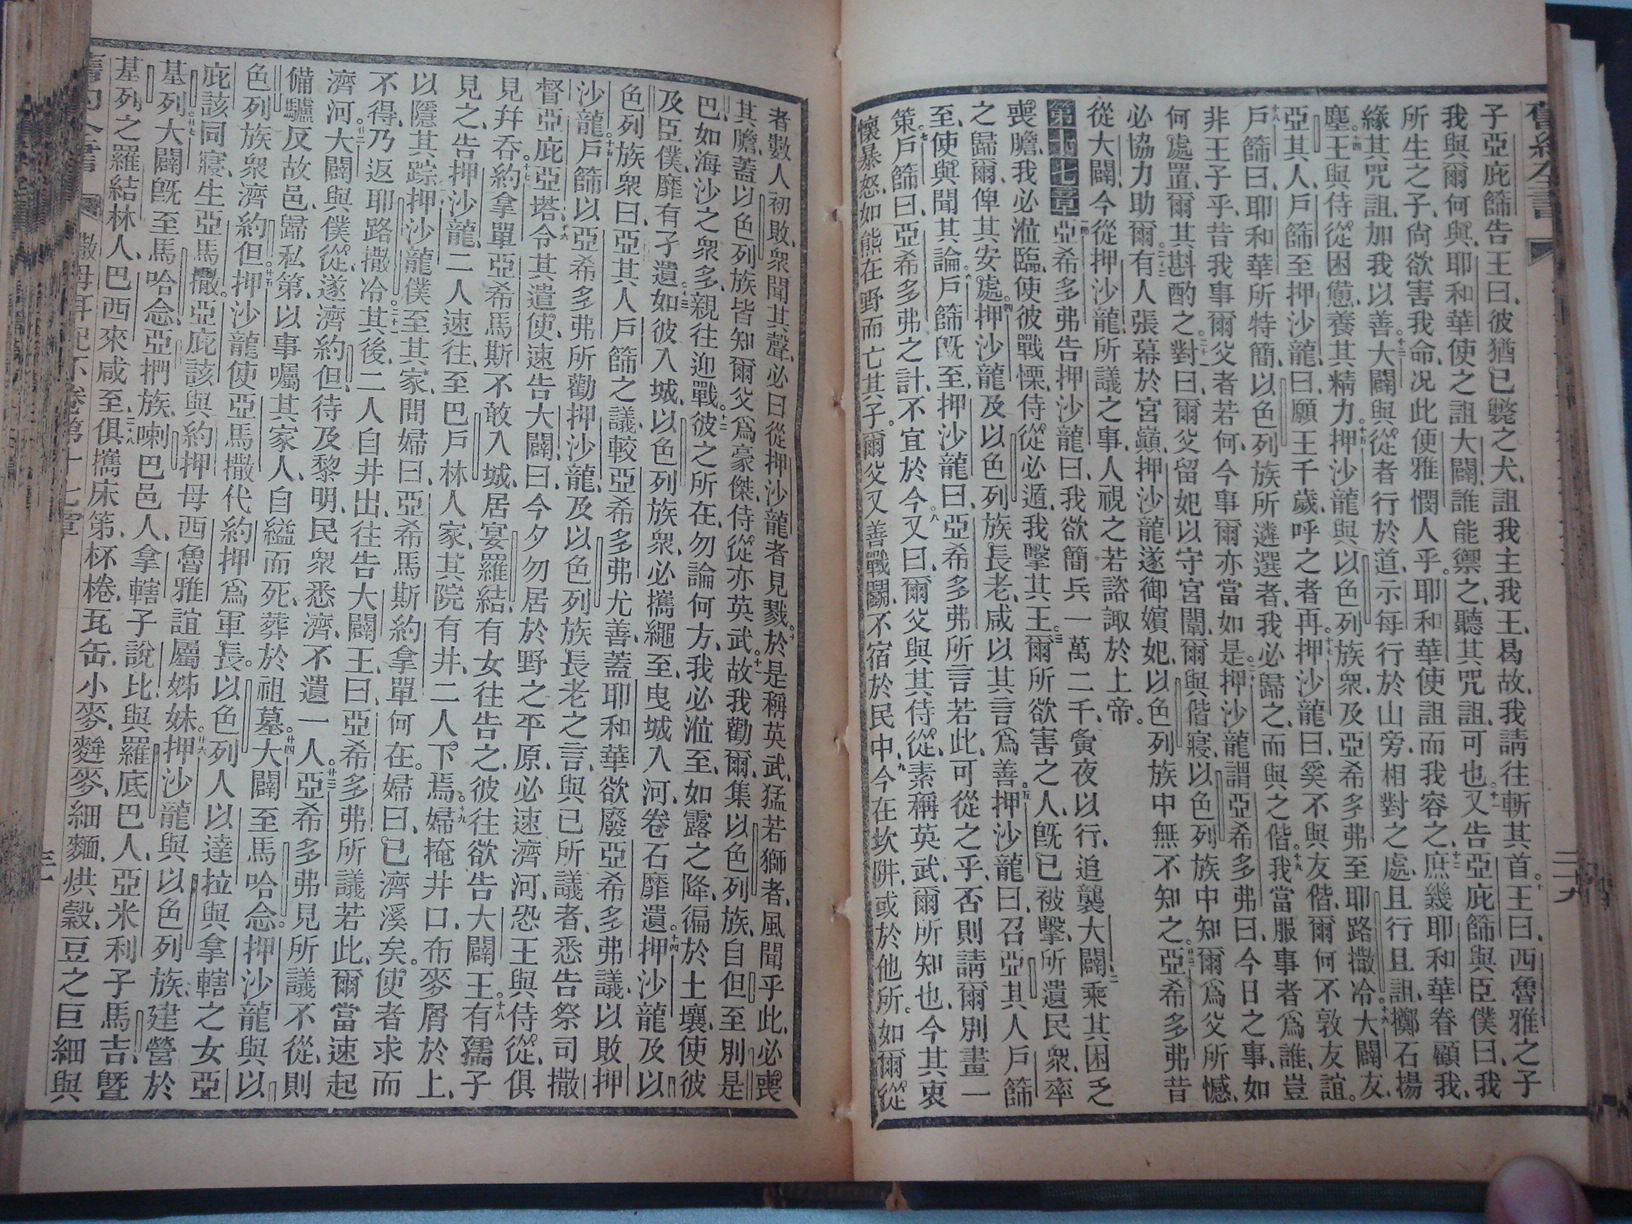 舊約全書
子亞庇篩告王曰彼猶已斃之犬詛我主我王曷故我請往斬其首王曰西魯雅之子
我與爾何與耶和華使之詛大闢誰能禦之聽其咒詛可也又告亞庇篩與臣僕曰我
所生之子尙欲害我命况此便雅憫人乎耶和華使詛而我容之庶幾耶和華眷顧我
緣其咒詛加我以善大闢與從者行於道示每行於山旁相對之處且行且詛擲石揚
塵王與侍從困憊養其精力押沙龍與以色列族衆及亞希多弗至耶路撒冷大闢友
亞其人戶篩至押沙龍曰願王千歲呼之者再押沙龍曰奚不與友偕爾何不敦友誼
戶篩曰耶和華所特簡以色列族所遴選者我必歸之而與之偕我當服事者爲誰豈
非王子乎昔我事爾父者若何今事爾亦當如是押沙龍謂亞希多弗曰今日之事如
何處置爾其斟酌之對曰爾父留妃以守宮闈爾與偕寢以色列族中知爾爲父所憾
必協力助爾有人張幕於宮巓押沙龍遂御嬪妃以色列族中無不知之亞希多弗昔
從大闢今從押沙龍所議之事人視之若諮諏於上帝
第十七章亞希多弗告押沙龍曰我欲簡兵一萬二千夤夜以行追襲大闢乘其困乏
喪膽我必涖臨使彼戰慄侍從必遁我擊其王爾所欲害之人旣已被擊所遺民衆率
之歸爾俾其安處押沙龍及以色列族長老咸以其言爲善押沙龍曰召亞其人戶篩
至使與聞其論戶篩旣至押沙龍曰亞希多弗所言若此可從之乎否則請爾別畫一
策戶篩曰亞希多弗之計不宜於今又曰爾父與其侍從素稱英武爾所知也今其衷
懷暴怒如熊在野而亡其子爾父又善戰鬬不宿於民中今在坎阱或於他所如爾從
者數人初敗衆聞其聲必曰從押沙龍者見戮於是稱英武猛若獅者風聞乎此必喪
其膽蓋以色列族皆知爾父爲豪傑侍從亦英武故我勸爾集以色列族自但至別是
巴如海沙之衆多親往迎戰彼之所在勿論何方我必涖至如露之降徧於土壤使彼
及臣僕靡有孑遺如彼入城以色列族衆必攜繩至曳城入河卷石靡遺押沙龍及以
色列族衆曰亞其人戶篩之議較亞希多弗尤善蓋耶和華欲廢亞希多弗議以敗押
沙龍戶篩以亞希多弗所勸押沙龍及以色列族長老之言與已所議者悉告祭司撒
督亞庇亞塔令其遣使速告大闢曰今夕勿居於野之平原必速濟河恐王與侍從俱
見幷吞約拿單亞希馬斯不敢入城居宴羅結有女往告之彼往欲告大闢王有孺子
見之告押沙龍二人速往至巴戶林人家其院有井二人下焉婦掩井口布麥屑於上
以隱其踪押沙龍僕至其家問婦曰亞希馬斯約拿單何在婦曰已濟溪矣使者求而
不得乃返耶路撒冷其後二人自井出往告大闢王曰亞希多弗所議若此爾當速起
濟河大闢與僕從遂濟約但待及黎明民衆悉濟不遺一人亞希多弗見所議不從則
備驢反故邑歸私第以事囑其家人自縊而死葬於祖墓大闢至馬哈念押沙龍與以
色列族衆濟約但押沙龍使亞馬撒代約押爲軍長以色列人以達拉與拿轄之女亞
庇該同寢生亞馬撒亞庇該與約押母西魯雅誼屬姊妹押沙龍與以色列族建營於
基列大闢旣至馬哈念亞捫族喇巴邑人拿轄子說比與羅底巴人亞米利子馬吉曁
基列之羅結林人巴西來咸至俱攜床第杯棬瓦缶小麥麰麥細麵烘穀豆之巨細與